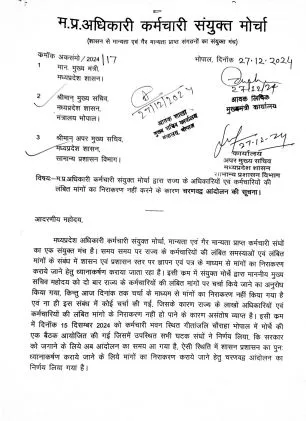 म.प्र.अधिकारी कर्मचारी संयुक्त मोर्चा
(शासन से मान्यता एवं गैर मान्यता प्राप्त संगठनों का संयुक्त मंच)
कमॉंक अकसंमो/2024/17
भोपाल, दिनांक 27.12.2024
1 मान. मुख्य मंत्री,
मध्यप्रदेश शासन।
27/12/24
आवक लिपिक
मुख्यमंत्री कार्यालय
2 श्रीमान् मुख्य सचिव,
मध्यप्रदेश शासन,
मंत्रालय भोपाल।
27/12/2024
आवक शाखा
मुख्य सचिव कार्यालय
मंत्रालय, भोपाल
3 श्रीमान् अपर मुख्य सचिव,
मध्यप्रदेश शासन,
सामान्य प्रशासन विभाग।
27-12-24
कार्यालय
अपर मुख्य सचिव
मध्यप्रदेश शासन
सामान्य प्रशासन विभाग
विषय:-म.प्र.अधिकारी कर्मचारी संयुक्त मोर्चा द्वारा राज्य के अधिकारियों एवं कर्मचारियों की
लंबित मांगों का निराकरण नहीं करने के कारण चरणवद्ध आन्दोलन की सूचना।
आदरणीय महोदय,
मध्यप्रदेश अधिकारी कर्मचारी संयुक्त मोर्चा, मान्यता एवं गैर मान्यता प्राप्त कर्मचारी संघों
का एक संयुक्त मंच है। समय समय पर राज्य के कर्मचारियों की लंबित समस्याओं एवं लंबित
मांगों के संबंध में शासन एवं प्रशासन स्तर पर ज्ञापन एवं पत्र के माध्यम से मांगों का निराकरण
कराये जाने हेतु ध्यानाकर्षण कराया जाता रहा है। इसी कम में संयुक्त मोर्चा द्वारा माननीय मुख्य
सचिव महोदय को दो बार राज्य के कर्मचारियों की लंबित मांगों पर चर्चा किये जाने का अनुरोध
किया गया, किन्तु आज दिनांक तक चर्चा के माध्यम से मांगों का निराकरण नहीं किया गया है
एवं ना ही इस संबंध में कोई चर्चा की गई, जिसके कारण राज्य के लाखों अधिकारियों एवं
कर्मचारियों की लंबित मांगों के निराकरण नहीं हो पाने के कारण असंतोष व्याप्त है। इसी कम
में दिनांक 15 दिसम्बर 2024 को कर्मचारी भवन स्थित गीतांजलि चौराहा भोपाल में मोर्चे की
एक बैठक आयोजित की गई जिसमें उपस्थित सभी घटक संघों ने निर्णय लिया, कि सरकार
को जगाने के लिये अब आन्दोलन का समय आ गया है, ऐसी स्थिति में शासन प्रशासन का पुनः
ध्यानाकर्षण कराये जाने के लिये मांगों का निराकरण कराये जाने हेतु चरणवद्ध आन्दोलन का
निर्णय लिया गया है।